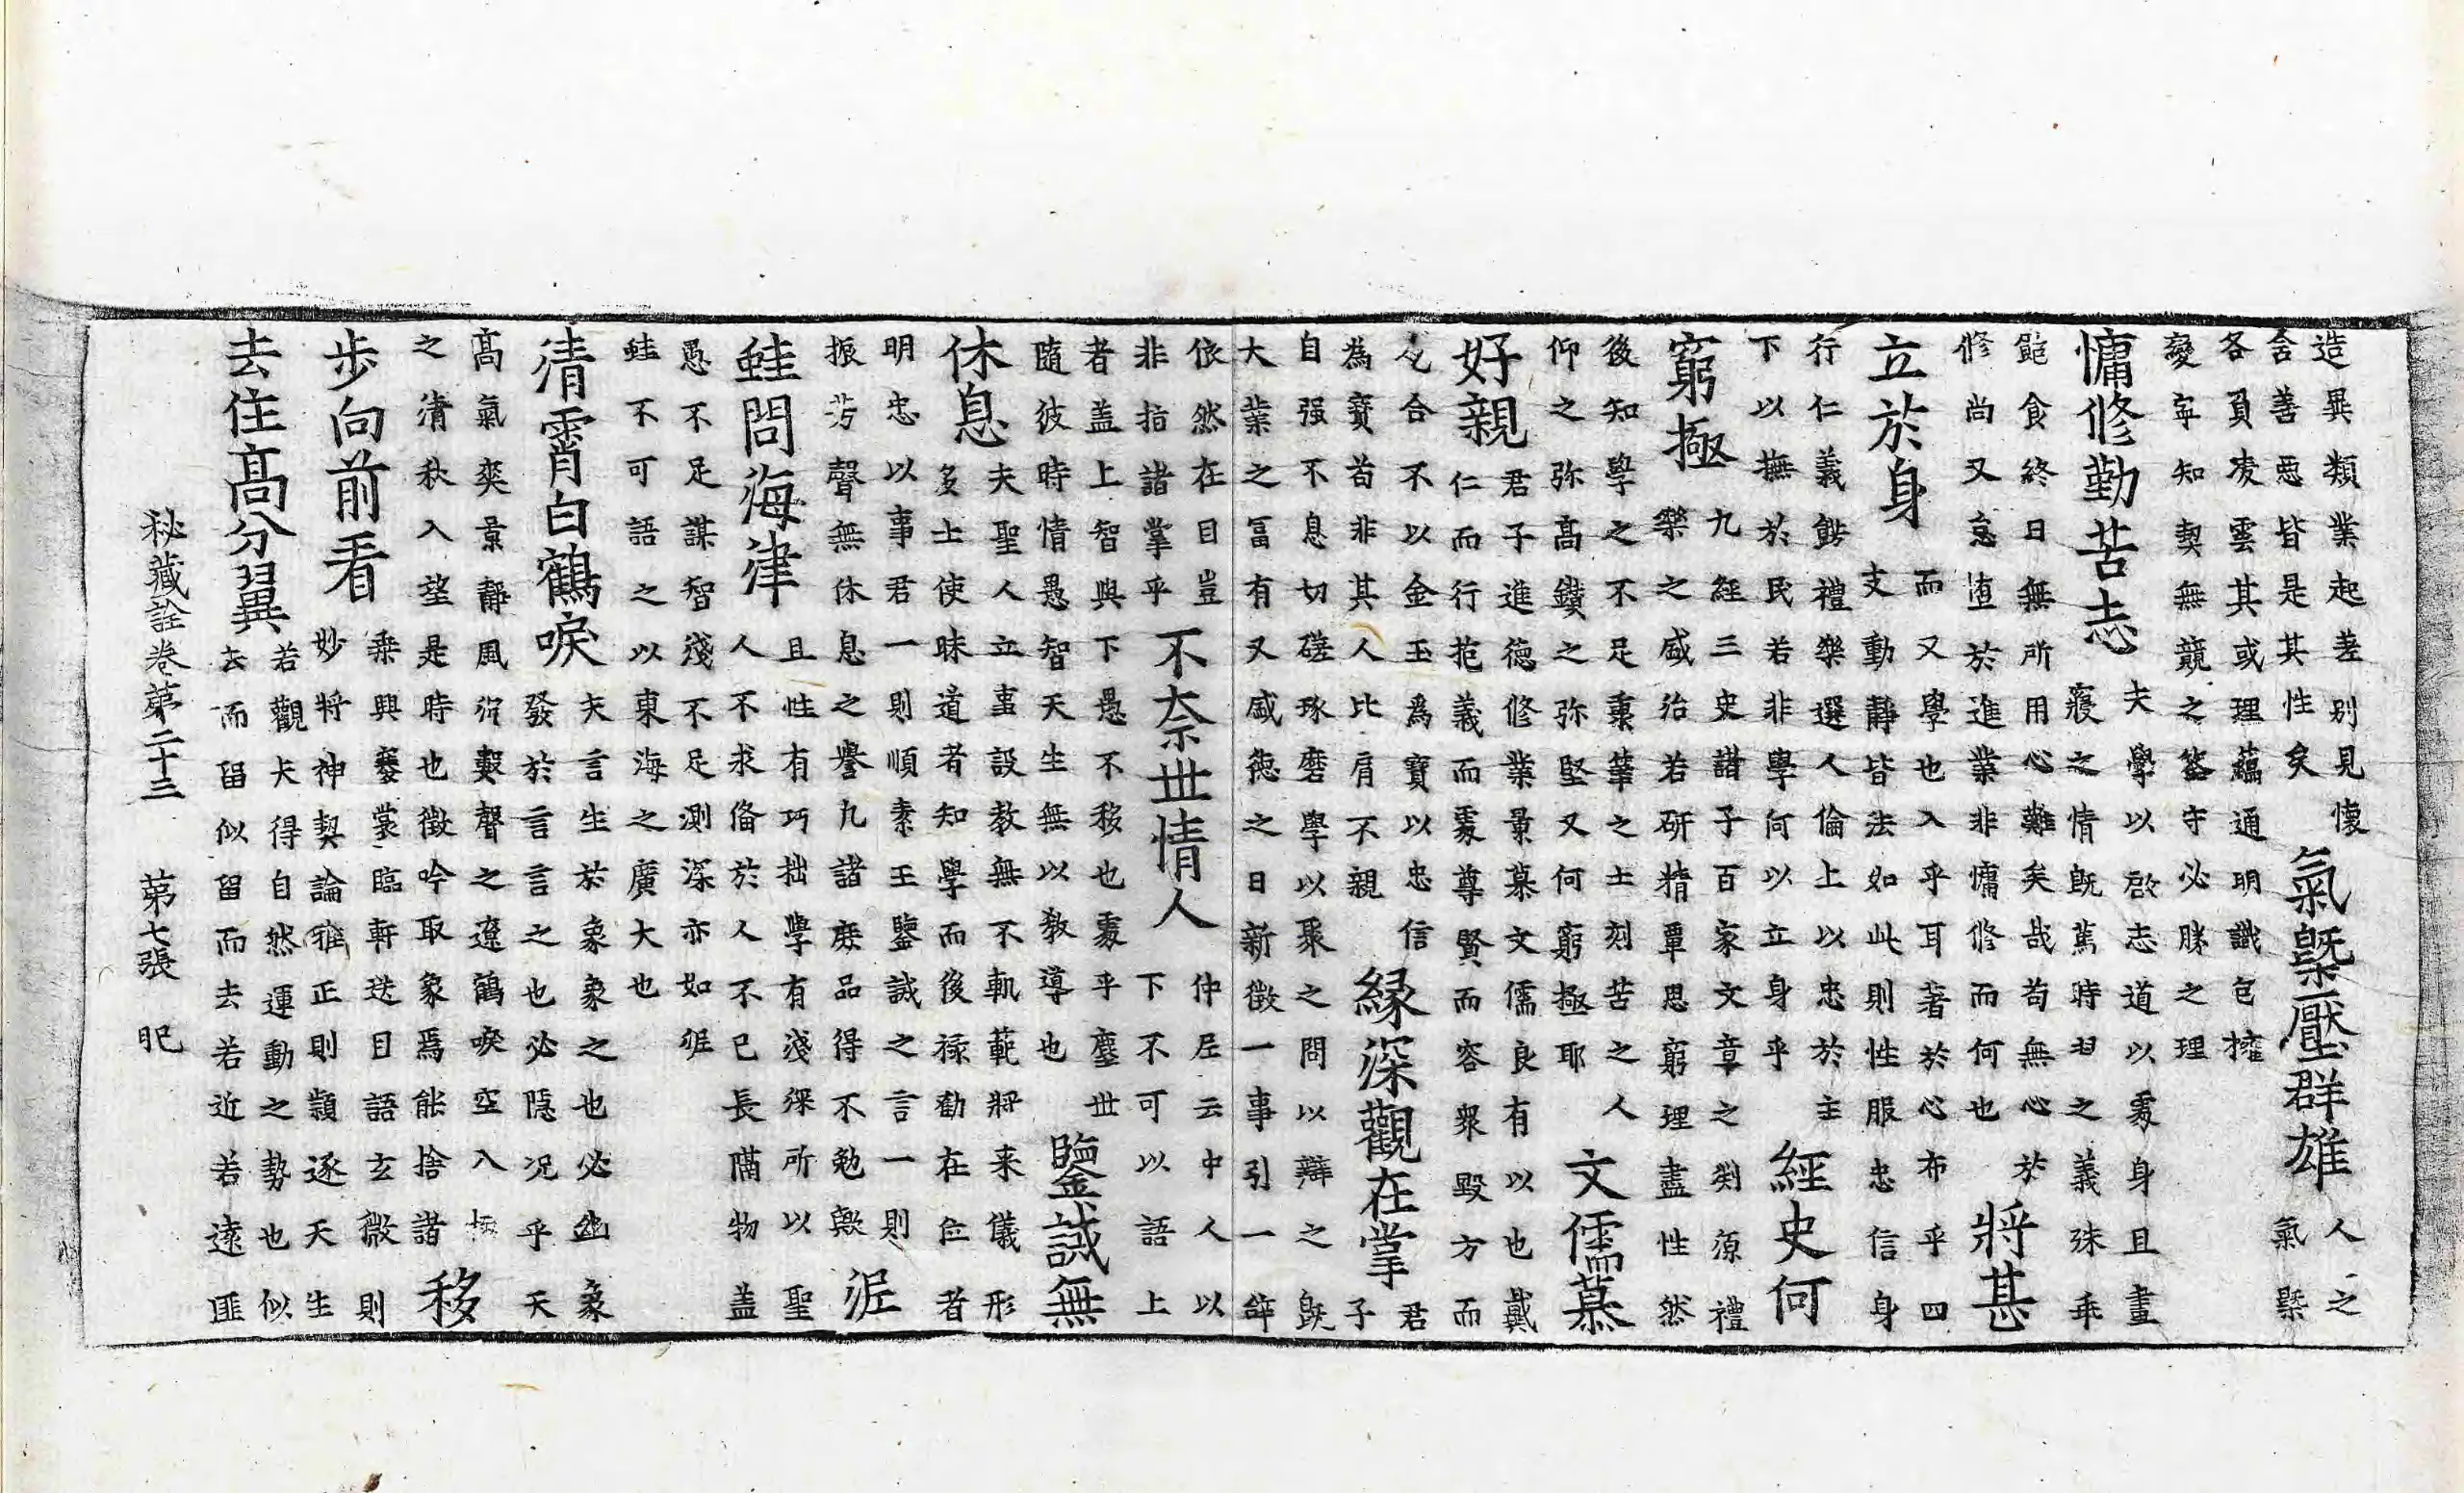 造異類業起差别見懷
舍善惡皆是其性矣
氣槩壓群雄
人之
氣槩
各負凌雲其或理蘊通明識包擁
變寧知契無競之筌守必勝之理
慵修勤苦志
夫學以啓志道以䖏身且晝
寢之情旣萬時之義殊乖
飽食終日無所用心難矣哉苟無心於
修尚又怠墮於進業非慵修而何也
將甚
立於身
而又學也入乎耳著於心布乎四
支動靜皆法如此則性服忠信身
行仁義飭禮樂選人倫上以忠於主
下以撫於民若非學何以立身乎
經史何
窮極
九經三史諸子百家文章之源禮
樂之咸治若研精覃思窮理盡性然
後知學之不足秉筆之士刻苦之人
仰之弥高鑽之弥堅又何窮極耶
文儒慕
好親
君子進德修業景慕文儒良有以也戴
仁而行抱義而䖏尊賢而容衆毀方而
瓦合不以金玉為寶以忠信
為寶苟非其人比肩不親
緣深觀在掌
君
子
自强不息切磋琢磨學以聚之問以辯之旣
大業之冨有又盛德之日新徵一事引一辝
依然在目豈
非指諸掌乎
不奈丗情人
仲尼云中人以
下不可以語上
者盖上智與下愚不移也䖏乎塵丗
隨彼時情愚智天生無以敎導也
鑒誡無
休息
夫聖人立事設敎無不軌範將来儀形
多士使昧道者知學而後祿勸在位者
明忠以事君一則順素王鑒誡之言一則
振芳聲無休息之譽凡諸庶品得不勉歟
泥
蛙問海津
且性有巧拙學有淺深所以聖
人不求俻於人不已長隔物盖
愚不足謀智淺不足測深亦如泥
蛙不可語之以東海之廣大也
清霄白鶴唳
夫言生於象象之也必象
發於言言之也必隱况乎天
高氣爽景靜風沉藪聲之遼鶴唳空入
之清秋入望是時也徵吟取象焉能捨諸
移
步向前看
乗興褰裳臨軒送目語玄微則
妙將神契論雅正則顗逐天生
去住高分翼
若觀夫得自然運動之勢也似
去而留似留而去若近若遠匪
秘藏詮卷第二十三　第七張　昵